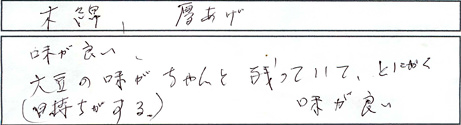 木綿、厚あげ
味が良い、
大豆の味がちゃんと残っていて、とにかく
(日持ちがする。) 味が良い